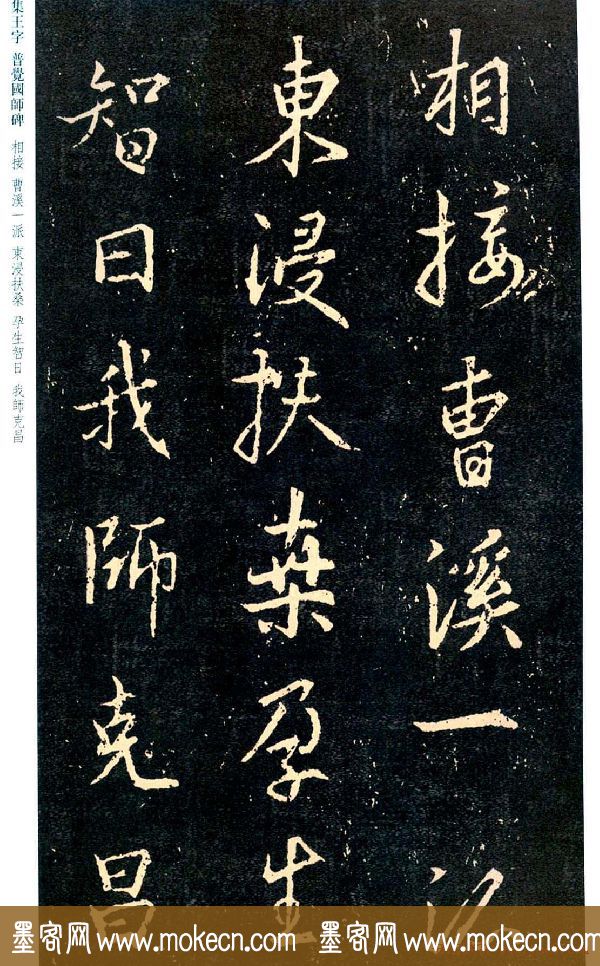 集王字 普覺國師碑 相接 曹溪一派 東浸扶桑 孕生智日 我師克昌
相接曹溪一派
東浸扶桑孕生
智日我師克昌
墨客网 www.mokecn.com 墨客网 www.mokecn.com